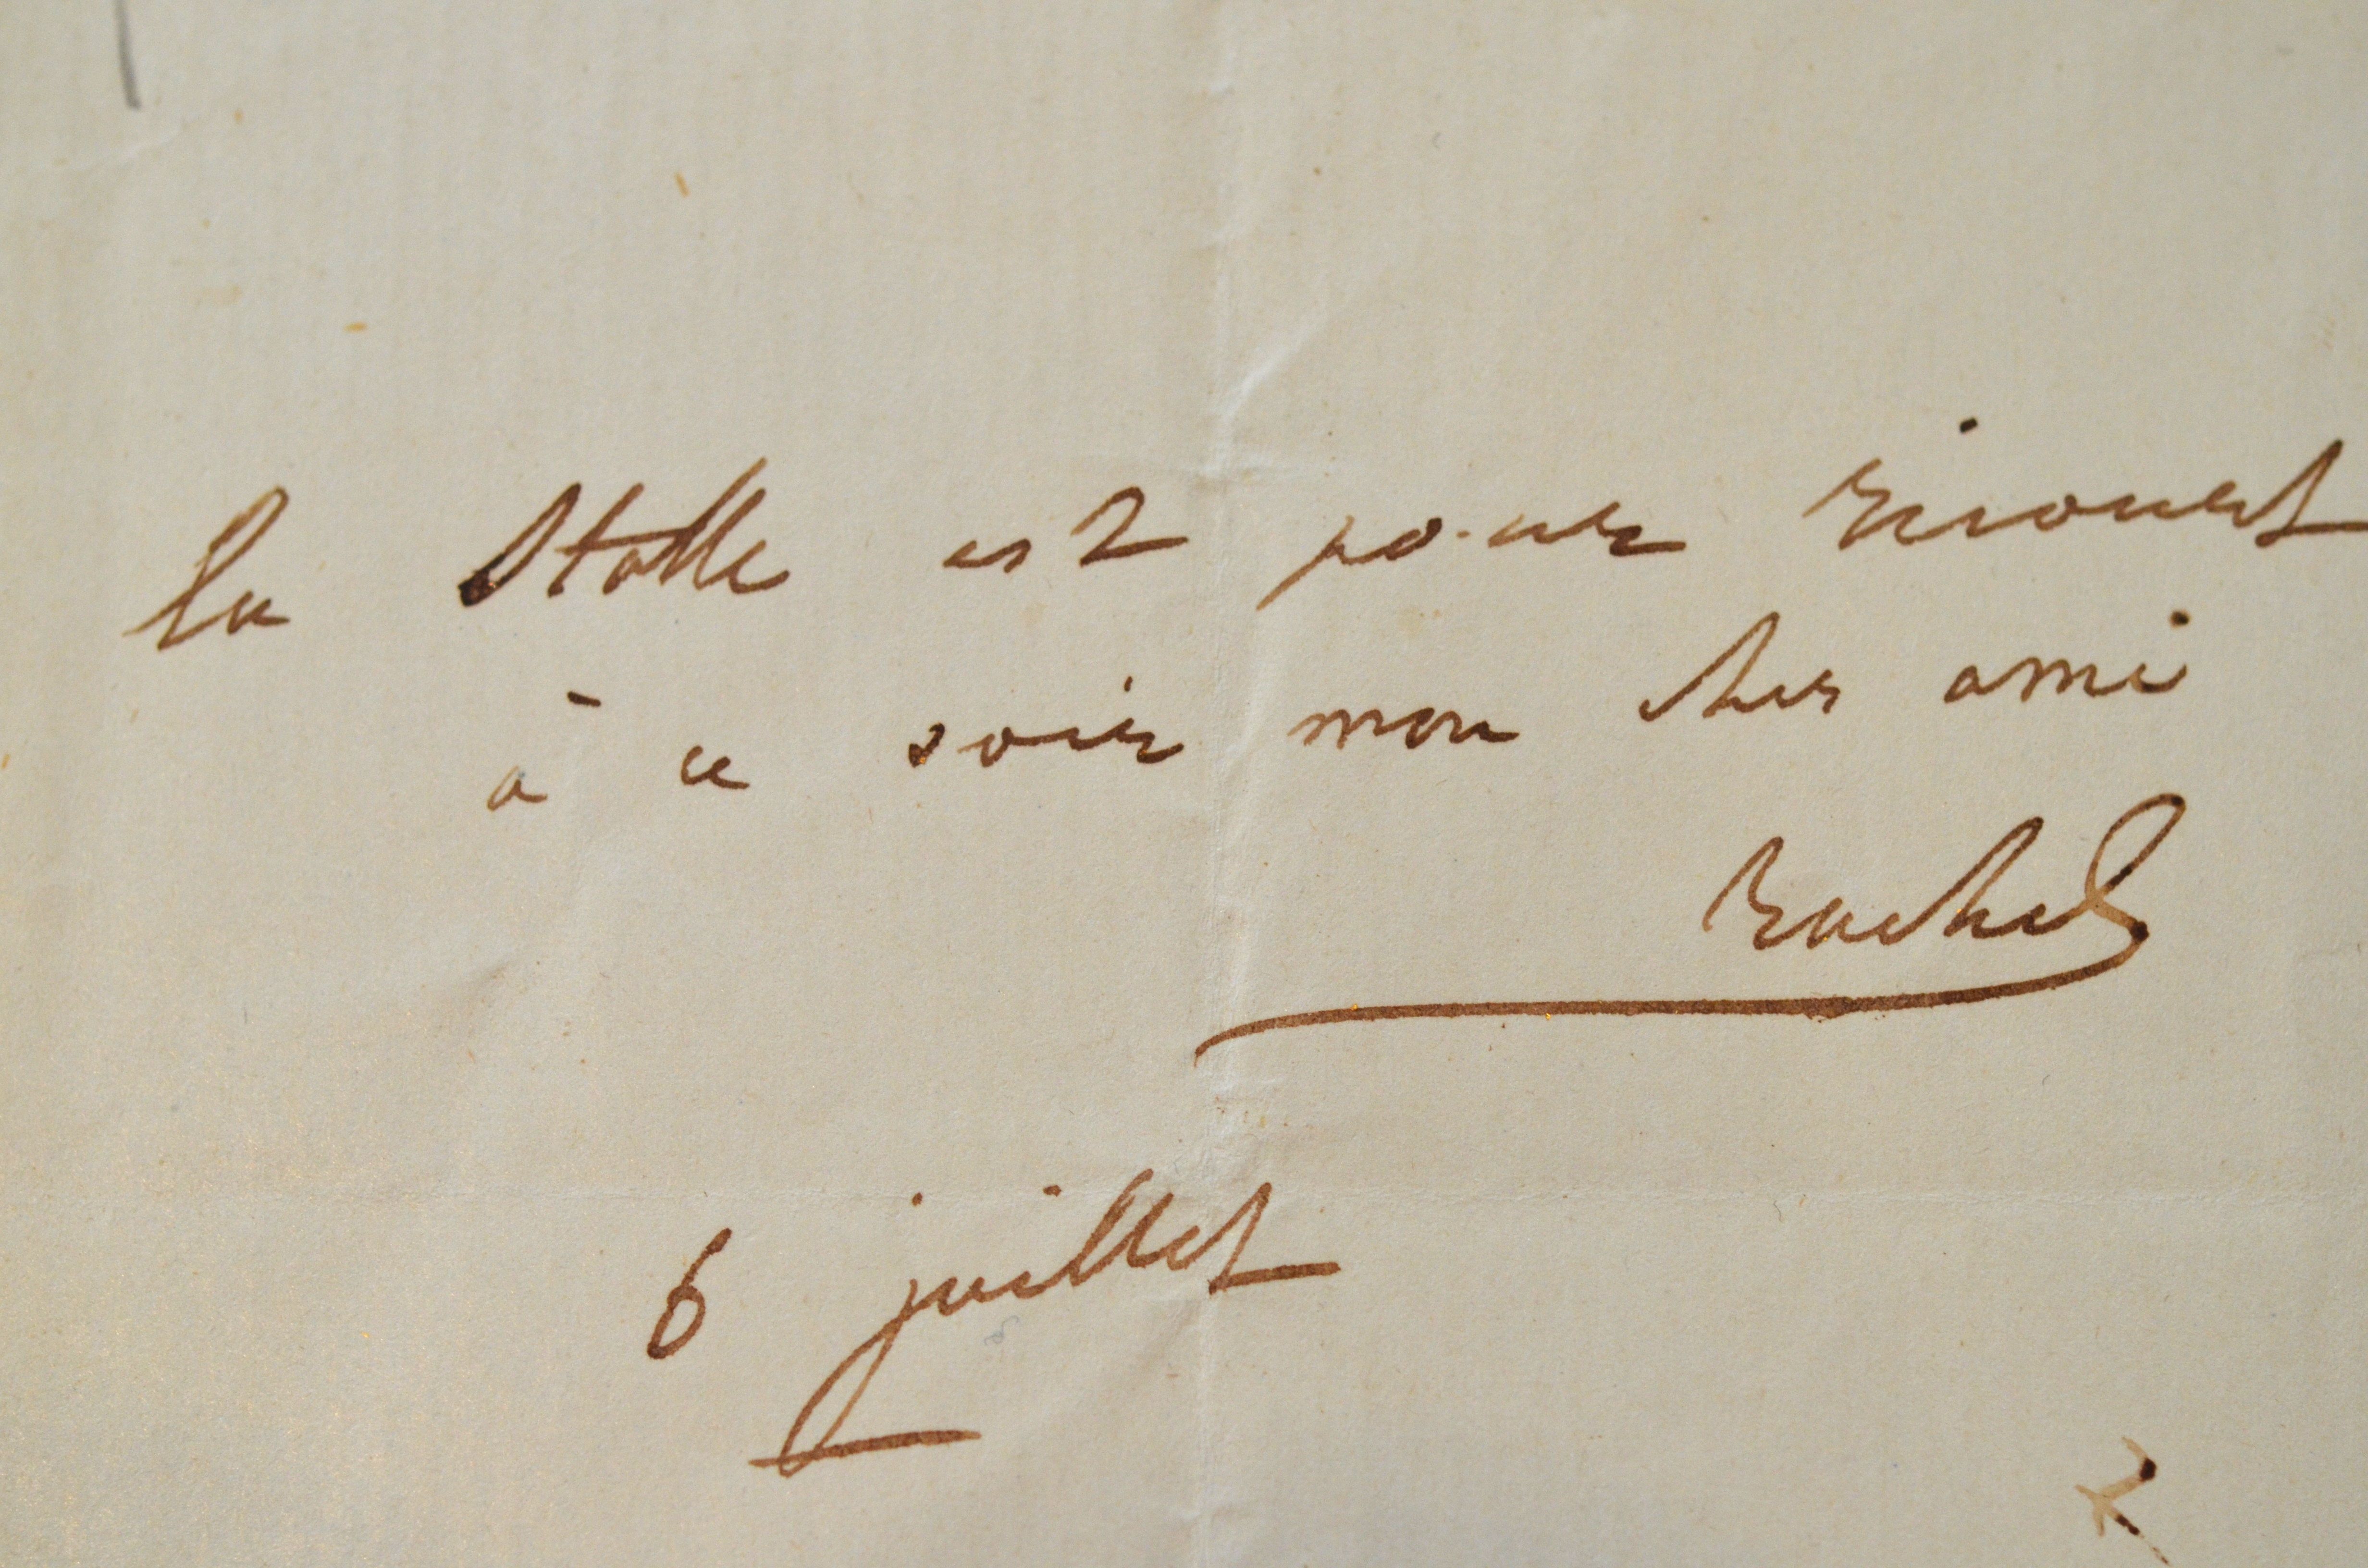 la Stalle est pour ricourt
à ce soir mon cher ami
Rachel
6 juillet